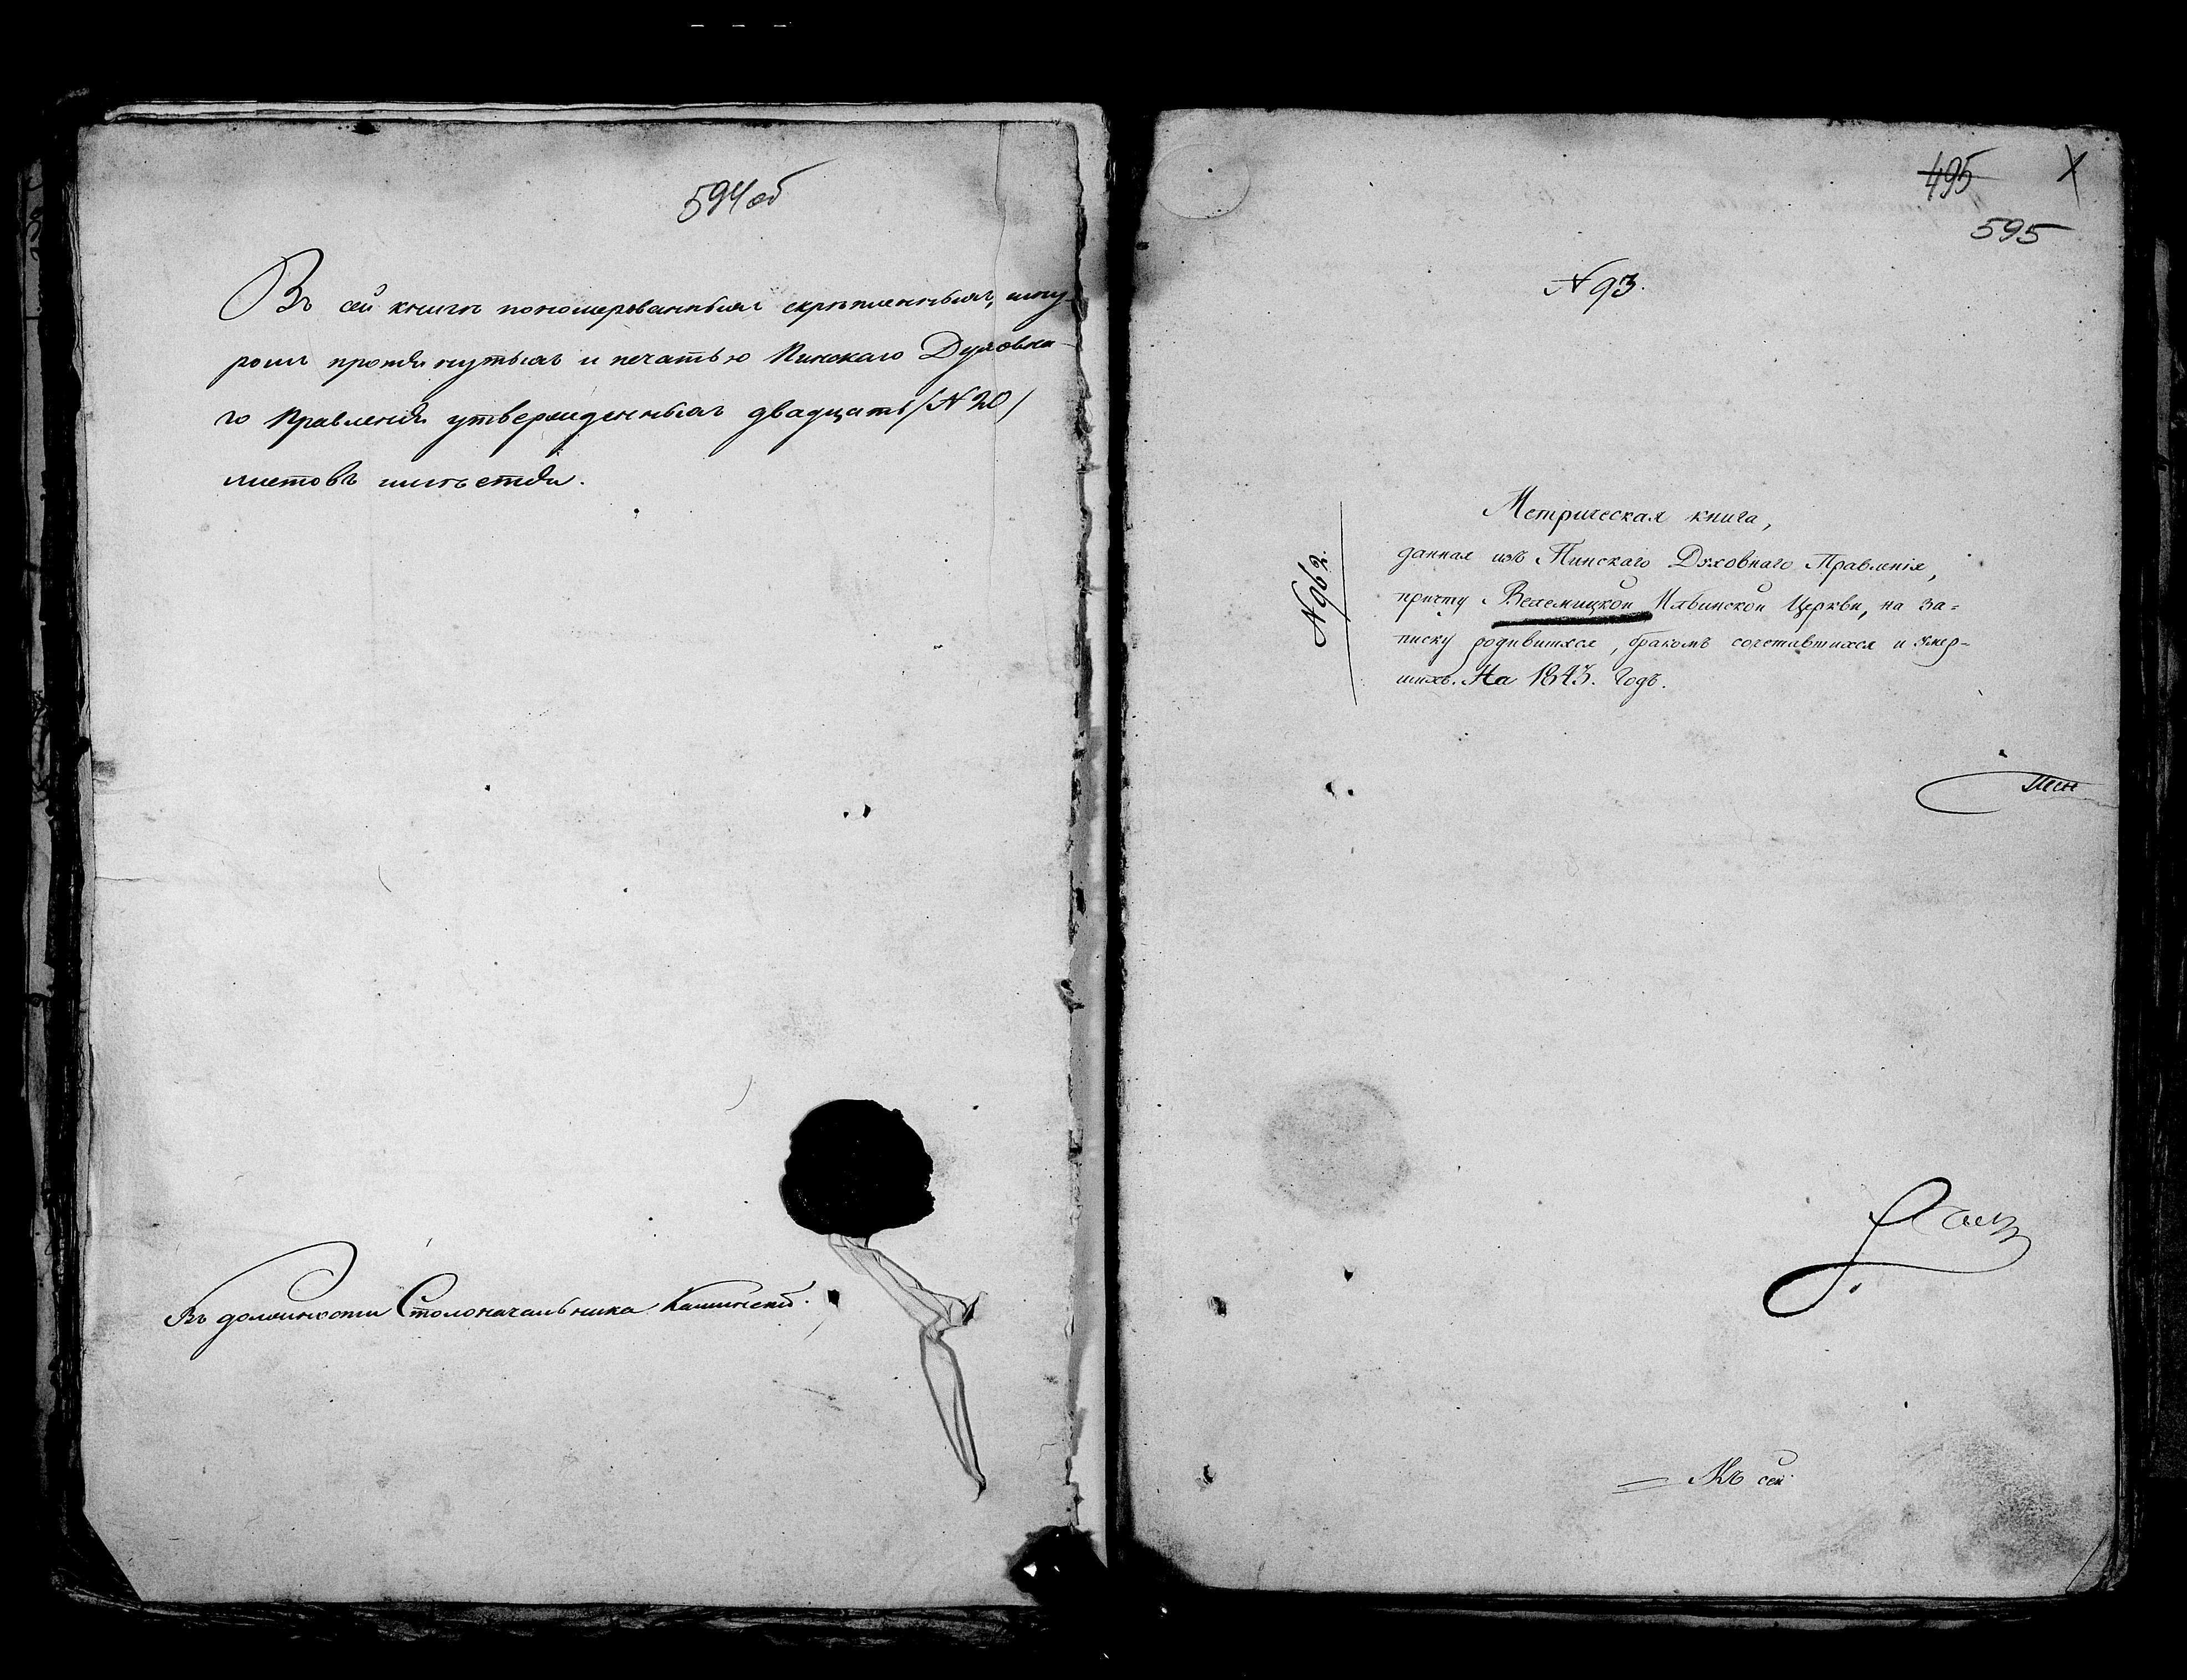 594 об
Въ сей книгѣ пономерованныхъ скрѣпленныхъ, шну-
ромъ протянутыхъ и печатью Пинскаго Духовна-
го Правленія утвержденныхъ двадцать /N 20/
листовъ имѣется.
Въ должности Столоначальника Кашинскій.
495 X
595
N 93.
N 962.
Метрическая книга,
данная изъ Пинскаго Духовнаго Правленія,
причту Велемицкой Ильинской Церкви, на за=
писку родившихся, бракомъ сочетавшихся и умер=
шихъ. На 1843. Годъ.
Пин
= Къ сей